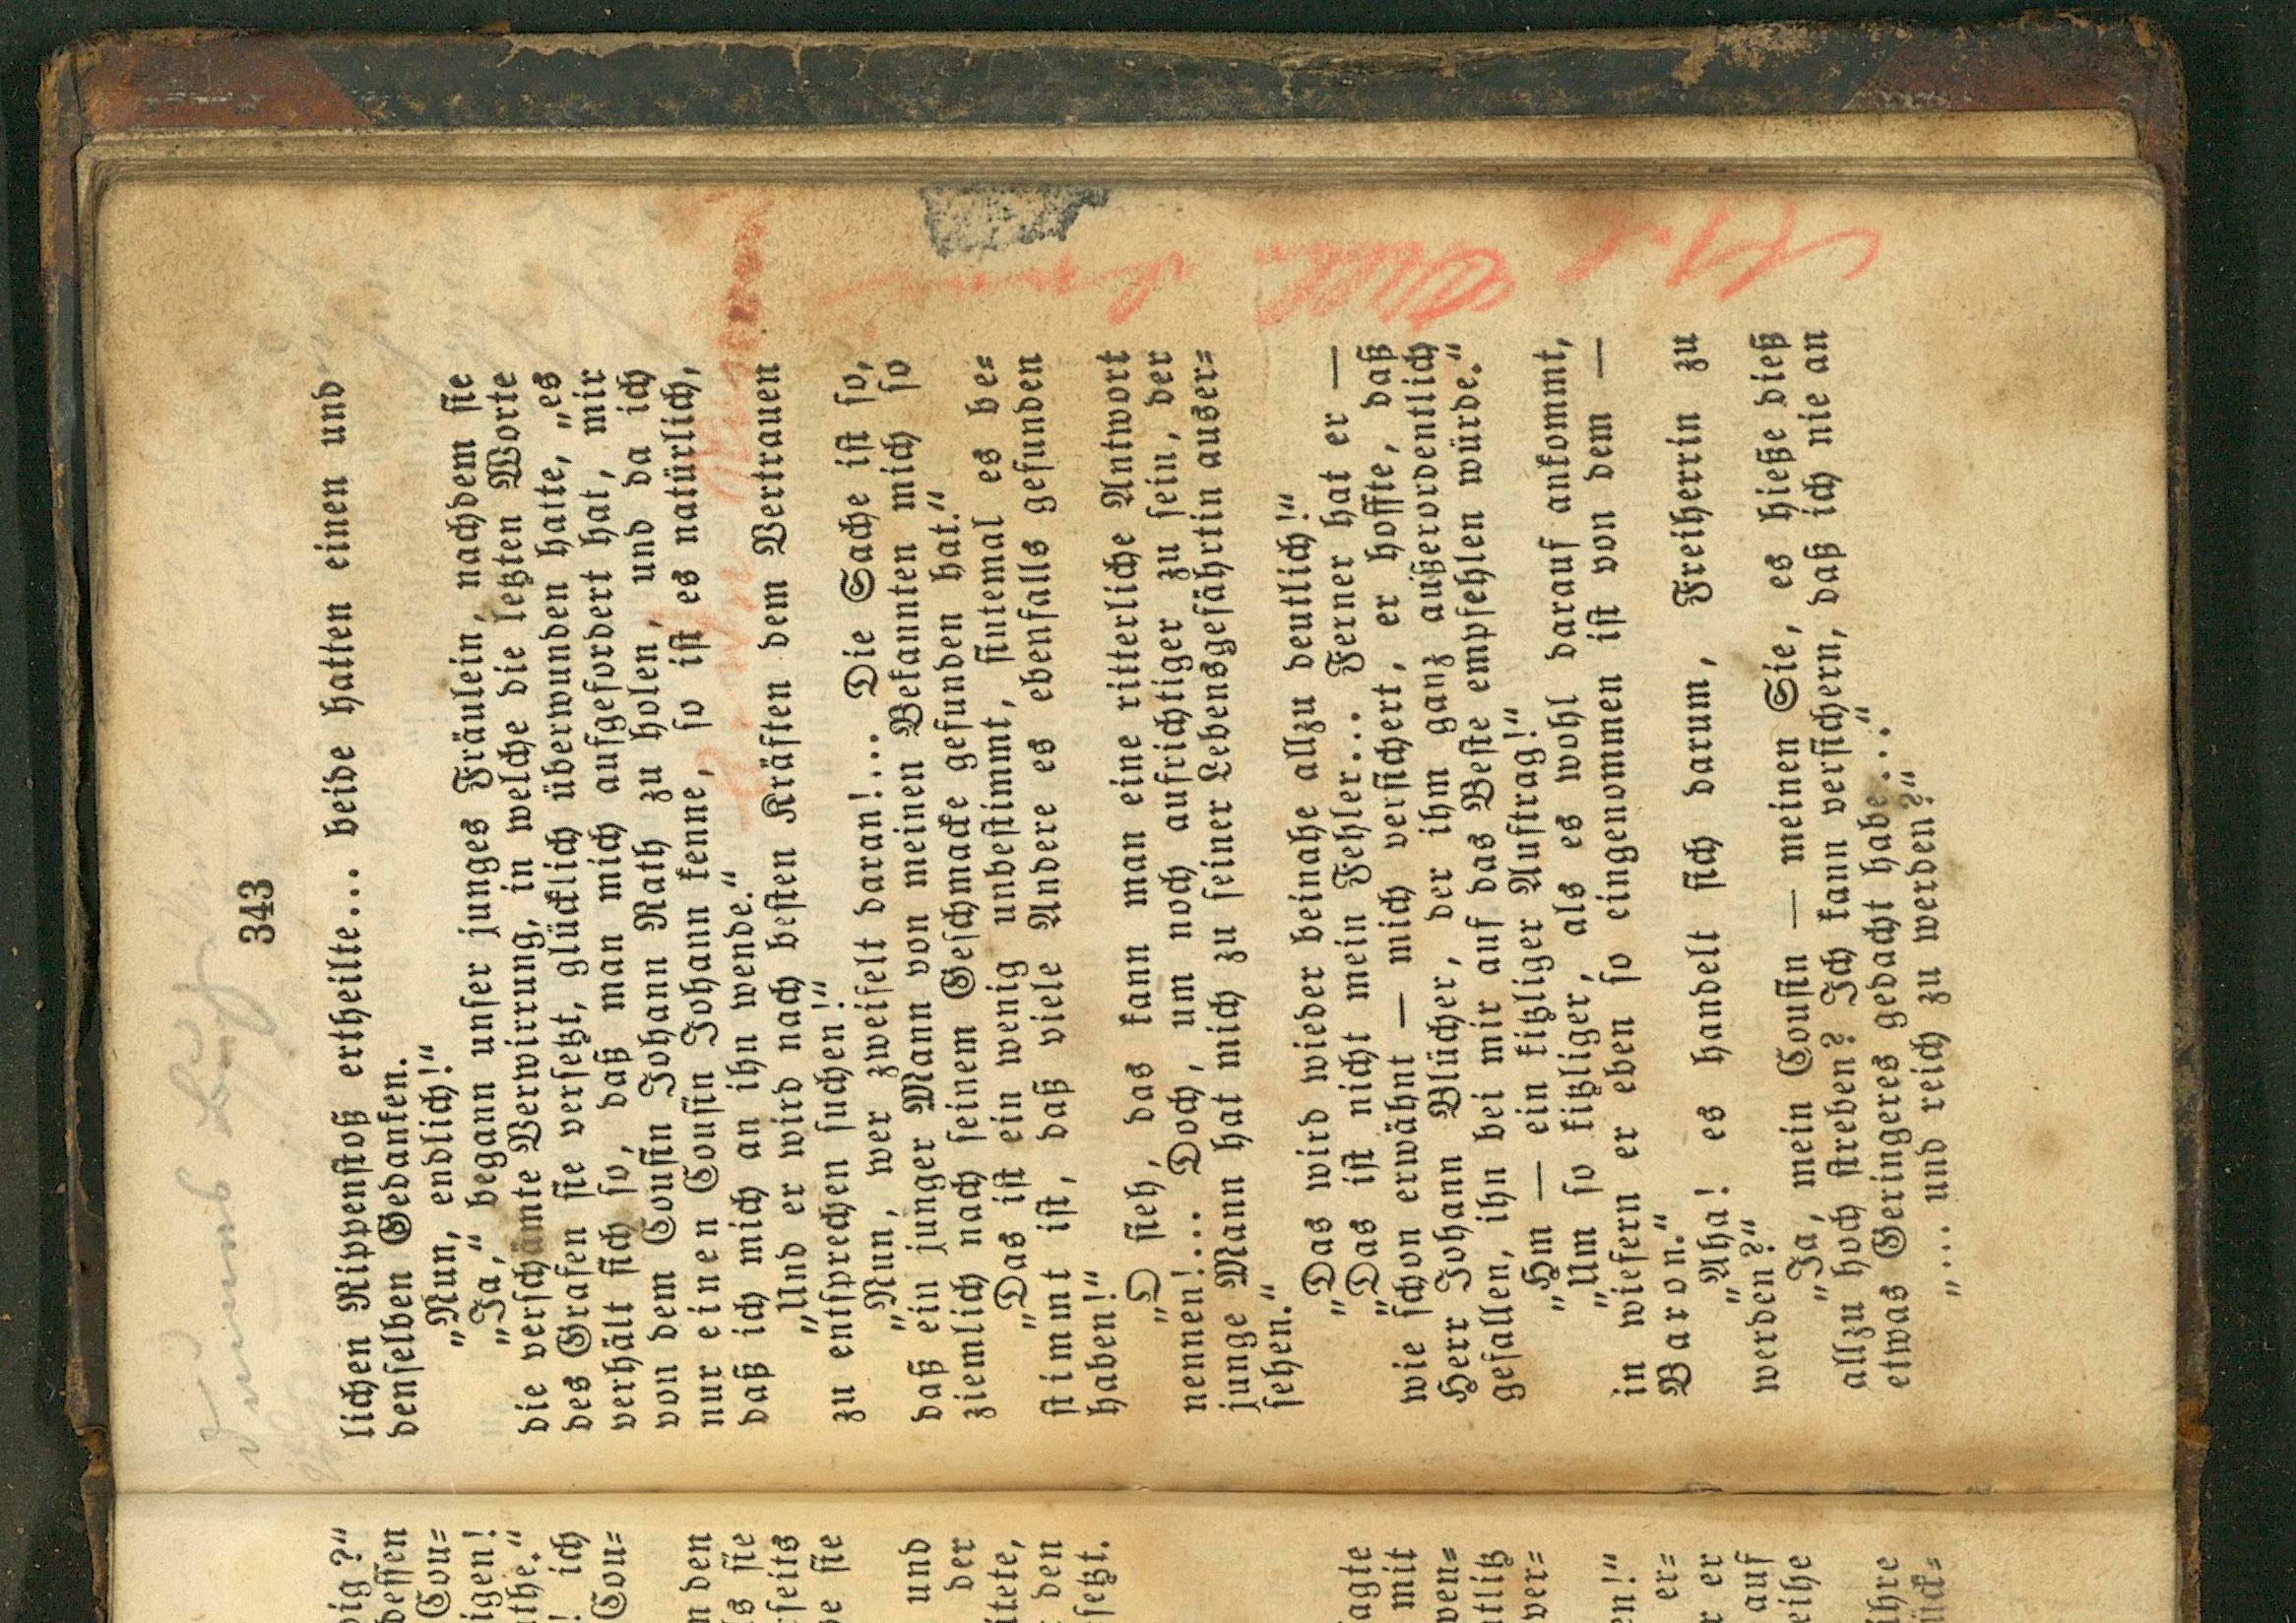 343
lichen Rippenstoß ertheilte... beide hatten einen und
denselben Gedanken.
„Nun, endlich!“
„Ja,“ begann unser junges Fräulein, nachdem sie
die verschämte Verwirrung, in welche die letzten Worte
des Grafen sie versetzt, glücklich überwunden hatte, „es
verhält sich so, daß man mich aufgefordert hat, mir
von dem Cousin Johann Rath zu holen, und da ich
nur einen Cousin Johann kenne, so ist es natürlich,
daß ich mich an ihn wende.“
„Und er wird nach besten Kräften dem Vertrauen
zu entsprechen suchen!“
„Nun, wer zweifelt daran!... Die Sache ist so,
daß ein junger Mann von meinen Bekannten mich so
ziemlich nach seinem Geschmacke gefunden hat.“
„Das ist ein wenig unbestimmt, sintemal es be=
stimmt ist, daß viele Andere es ebenfalls gefunden
haben!“
„O sieh, das kann man eine ritterliche Antwort
nennen!... Doch, um noch aufrichtiger zu sein, der
junge Mann hat mich zu seiner Lebensgefährtin auser=
sehen.“
„Das wird wieder beinahe allzu deutlich!“
„Das ist nicht mein Fehler... Ferner hat er —
wie schon erwähnt — mich versichert, er hoffte, daß
Herr Johann Blücher, der ihm ganz außerordentlich
gefallen, ihn bei mir auf das Beste empfehlen würde.“
„Hm — ein kitzliger Auftrag!“
„Um so kitzliger, als es wohl darauf ankommt,
in wiefern er eben so eingenommen ist von dem —
Baron.“
„Aha! es handelt sich darum, Freiherrin zu
werden?“
„Ja, mein Cousin — meinen Sie, es hieße dieß
allzu hoch streben? Ich kann versichern, daß ich nie an
etwas Geringeres gedacht habe...“
„... und reich zu werden?“
dessen
Cou=
igen!
ich
Cou=
den
sie
seits
sie
und
der
den
setzt.
agte
mit
er
auf
ihre